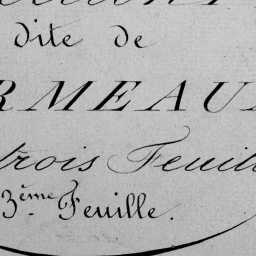 dite de
RMEAU
trois Feuill
3.ème Feuille.